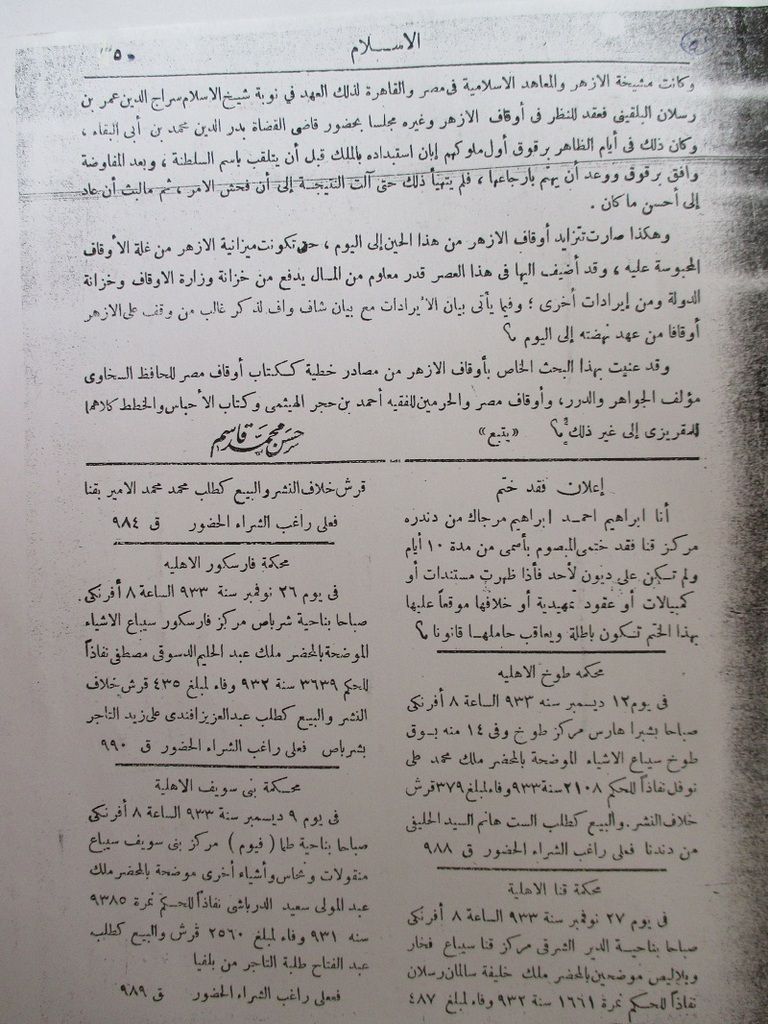 الاســلام
٥٠
وكانت مشيخة الازهر والمعاهد الاسلامية فى مصر والقاهرة لذلك العهد في نوبة شيخ الاسلام سراج الدين عمر بن
رسلان البلقينى فعقد للنظر فى أوقاف الازهر وغيره مجلسا بحضور قاضى القضاة بدر الدين محمد بن أبى البقاء ،
وكان ذلك فى أيام الظاهر برقوق أول ملوكهم إبان استبداده بالملك قبل أن يتلقب باسم السلطنة ، وبعد المفاوضة
وافق برقوق ووعد أن يهتم بارجاعها ، فلم يتهيأ ذلك حتى آلت النتيجة إلى أن فحش الامر ، ثم مالبث أن عاد
إلى أحسن ما كان .
وهكذا صارت تتزايد أوقاف الازهر من هذا الحين إلى اليوم ، حتى تكونت ميزانية الازهر من غلة الأوقاف
المحبوسة عليه ، وقد أضيف اليها فى هذا العصر قدر معلوم من المــال يدفع من خزانة وزارة الاوقاف وخزانة
الدولة ومن إيرادات أخرى ؛ وفيما يأتى بيان الايرادات مع بيان شاف واف لذكر غالب من وقف على الازهر
أوقافا من عهد نهضته إلى اليوم ؟
وقد عنيت بهذا البحث الخاص بأوقاف الازهر من مصادر خطية ككتاب أوقاف مصر للحافظ السخاوى
مؤلف الجواهر والدرر، وأوقاف مصر والحرمين للفقيه أحمد بن حجر الهيثمى وكتاب الأحباس والخطط كلاهما
للمقريزى إلى غير ذلك ؟ «يتبع»
حسن محمد قاسم
إعلان فقد ختم
أنا ابراهيم احمــد ابراهيم مرجاك من دندره
مركز قنا فقد ختمى المبصوم بأسمى من مدة ١٠ أيام
ولم تكن على ديون لأحد فأذا ظهرت مستندات أو
كمبيالات أو عقود تمهيدية أو خلافها موقعاً عليها
بهذا الختم تكون باطلة ويعاقب حاملهــا قانونا ؟
محكمه طوخ الاهليه
فى يوم ١٢ ديسمبر سنه ٩٣٣ الساعة ٨ أفرنكى
صباحا بشبرا هارس مركز طوخ وفى ١٤ منه بسوق
طوخ سيباع الاشياء الموضحة بالمحضر ملك محمد على
نوفل نفاذاً للحكم ٢١٠٨ سنة ٩٣٣ وفاء لمبلغ ٣٧٩ قرش
خلاف النشر. والبيع كطلب الست هانم السيد الحليفى
من دندنا فعلى راغب الشراء الحضور ق ٩٨٨
محكمة قنا الاهلية
فى يوم ٢٧ نوفمبر سنة ٩٣٣ الساعة ٨ أفرنكى
صباحا بناحيــة الدير الشرقى مركز قنا سيباع فخار
وبلاليص موضحين بالمحضر ملك خليفة سالمان رسلان
نفاذاً للحكم نمرة ١٦٦١ سنة ٩٣٢ وفاء لمبلغ ٤٨٧
قرش خلاف النشر والبيع كطلب محمد محمد الامير بقنا
فعلى راغب الشراء الحضور ق ٩٨٤
محكمة فارسكور الاهليه
فى يوم ٢٦ نوفمبر سنة ٩٣٣ الساعة ٨ أفرنكى
صباحا بناحية شرباص مركز فارسكور سيباع الاشياء
الموضحة بالمحضر ملك عبد الحليم الدسوقى مصطفى نفاذاً
للحكم ٣٦٣٩ سنة ٩٣٢ وفاء لمبلغ ٤٣٥ قرش خلاف
النشر والبيع كطلب عبد العزيز افندى على زيد التاجر
بشرباص فعلى راغب الشراء الحضور ق ٩٩٠
محـكمة بنى سويف الاهلية
فى يوم ٩ ديسمبر سنة ٩٣٣ الساعة ٨ أفرنكى
صباحا بناحية طما ( فيوم ) مركز بنى سويف سيباع
منقولات ونحاس وأشياء أخرى موضحة بالمحضر ملك
عبد المولى سعيد الدرباشى نفاذاً للحـكم نمرة ٩٣٨٥
سنه ٩٣١ وفاء لمبلغ ٢٥٦٠ قرش والبيع كطلب
عبد الفتاح طلبة التاجر من بلفيا
فعلى راغب الشراء الحضور ق ٩٨٩